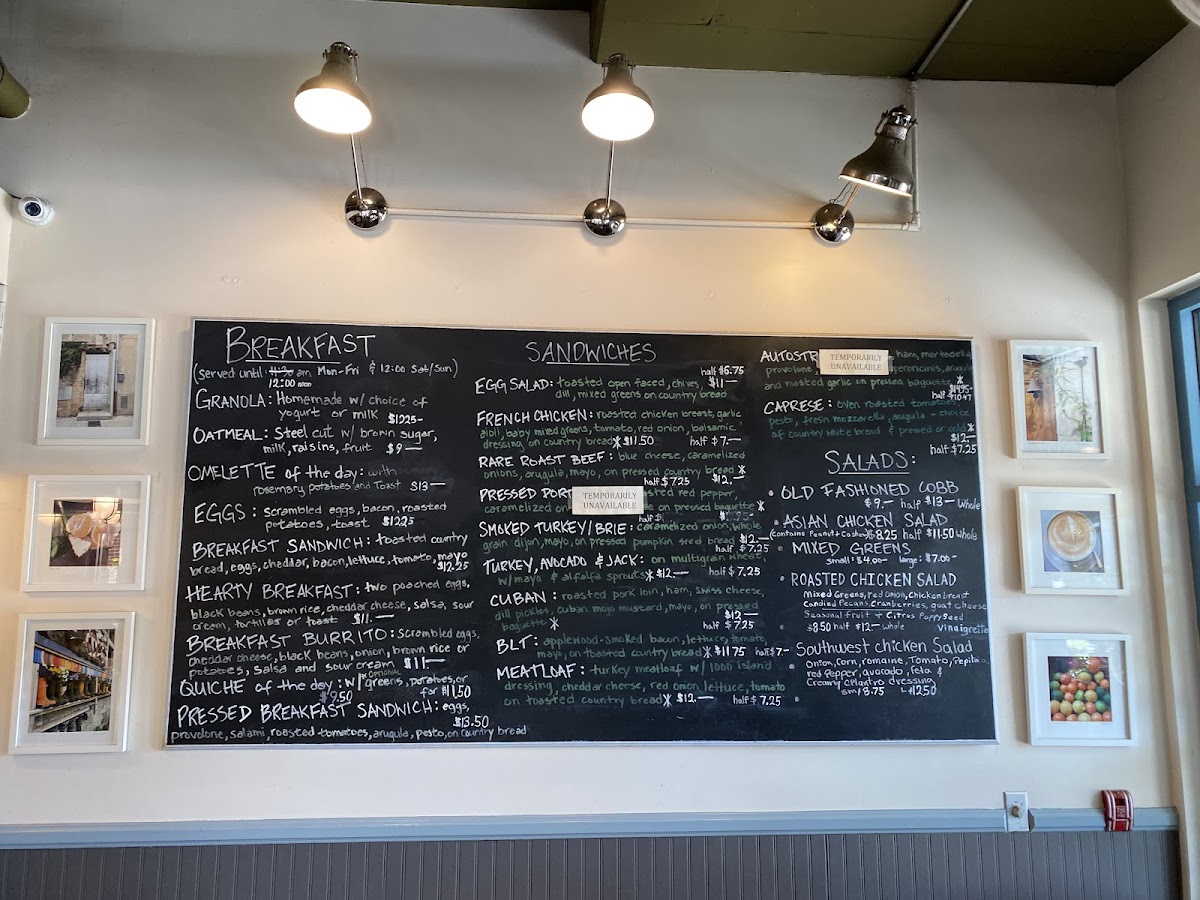 BREAKFAST
(served until 11:30 am Mon-Fri & 12:00 Sat/Sun)
12:00 noon
GRANOLA: Homemade w/ choice of
yogurt or milk $1225-
OATMEAL: Steel cut w/ brown sugar,
milk, raisins, fruit $9—
OMELETTE of the day: with
rosemary potatoes and Toast $13—
EGGS: scrambled eggs, bacon, roasted
potatoes, toast $1225
BREAKFAST SANDWICH: toasted country
bread, eggs, cheddar, bacon, lettuce, tomato, mayo
$12.25
HEARTY BREAKFAST: two poached eggs,
black beans, brown rice, cheddar cheese, salsa, sour
cream, tortillas or toast $11.—
BREAKFAST BURRITO: scrambled eggs,
cheddar cheese, black beans, onion, brown rice or
potatoes, salsa and sour cream $11—
OPTIONAL
QUICHE of the day: w/ greens, potatoes, or
$9.50 for $11.50
PRESSED BREAKFAST SANDWICH: eggs,
$13.50
provolone, salami, roasted tomatoes, arugula, pesto, on country bread
SANDWICHES
half $6.75
EGG SALAD: toasted open faced, chives, $11—
dill, mixed greens on country bread
FRENCH CHICKEN: roasted chicken breast, garlic
aioli, baby mixed greens, tomato, red onion, balsamic
dressing, on country bread* $11.50 half $7.—
RARE ROAST BEEF: blue cheese, caramelized
onions, arugula, mayo, on pressed country bread *
half $7.25 $12.—
PRESSED POR TEMPORARILY UNAVAILABLE red pepper,
caramelized on on pressed baguette *
SMOKED TURKEY/BRIE: caramelized onion, whole
grain dijon, mayo, on pressed pumpkin seed bread * $12.—
half $7.25
TURKEY, AVOCADO & JACK: on multigrain wheat,
w/ mayo & alfalfa sprouts* $12.— half $7.25
CUBAN: roasted pork loin, ham, swiss cheese,
dill pickles, cuban mojo mustard, mayo, on pressed
baguette * $12—
half $7.25
BLT: applewood-smoked bacon, lettuce, tomato,
mayo, on toasted country bread* $11.75 half $7-
MEATLOAF: turkey meatloaf w/ 1000 island
dressing, cheddar cheese, red onion, lettuce, tomato
on toasted country bread* $12.— half $7.25
AUTOSTR TEMPORARILY UNAVAILABLE ham, mortadella
provolone, peperoncinis, arugula
and roasted garlic on pressed baguette *
$14.95
half $10.47
CAPRESE: oven roasted tomatoes,
pesto, fresh mozzarella, arugula - choice
of country white bread & pressed or cold *
$12.—
half $7.25
SALADS:
• OLD FASHIONED COBB
$9.— half $13— Whole
• ASIAN CHICKEN SALAD
(contains Peanut + Cashew) $8.25 half $11.50 Whole
• MIXED GREENS
small: $4.00— large: $7.00—
• ROASTED CHICKEN SALAD
Mixed Greens, red Onion, Chicken breast
Candied Pecans, Cranberries, goat cheese
Seasonal fruit + Citrus Poppyseed
$8.50 half $12— whole vinaigrette
• Southwest chicken Salad
Onion, Corn, romaine, Tomato, Pepita,
red Pepper, avocado, feta &
Creamy Cilantro dressing
sm $8.75 L $12.50